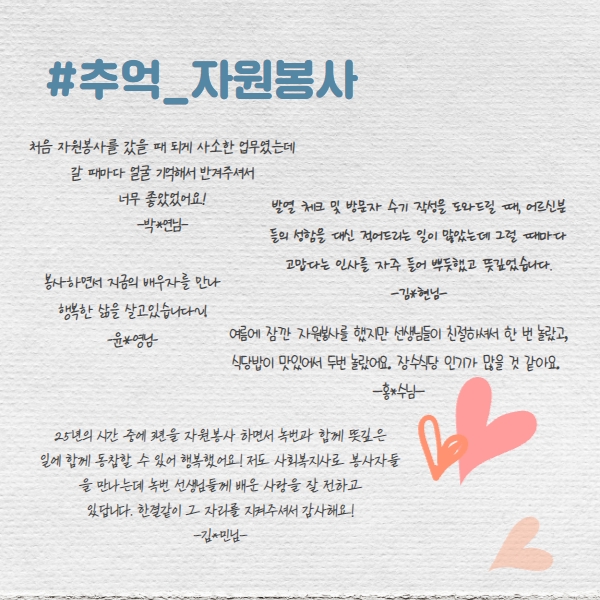 #추억_자원봉사
처음 자원봉사를 갔을 때 되게 사소한 업무였는데
갈 때마다 얼굴 기억해서 반겨주셔서
너무 좋았었어요!
-박*연님-
발열 체크 및 방문자 수기 작성을 도와드릴 때, 어르신분
들의 성함을 대신 적어드리는 일이 많았는데 그럴 때마다
고맙다는 인사를 자주 들어 뿌듯했고 뜻깊었습니다.
-김*현님-
봉사하면서 지금의 배우자를 만나
행복한 삶을 살고있습니다~!
-윤*영님-
여름에 잠깐 자원봉사를 했지만 선생님들이 친절하셔서 한 번 놀랐고,
식당밥이 맛있어서 두번 놀랐어요. 장수식당 인기가 많을 것 같아요.
-홍*수님-
25년의 시간 중에 3년을 자원봉사 하면서 녹번과 함께 뜻깊은
일에 함께 동참할 수 있어 행복했어요! 저도 사회복지사로 봉사자들
을 만나는데 녹번 선생님들께 배운 사랑을 잘 전하고
있답니다. 한결같이 그 자리를 지켜주셔서 감사해요!
-김*민님-